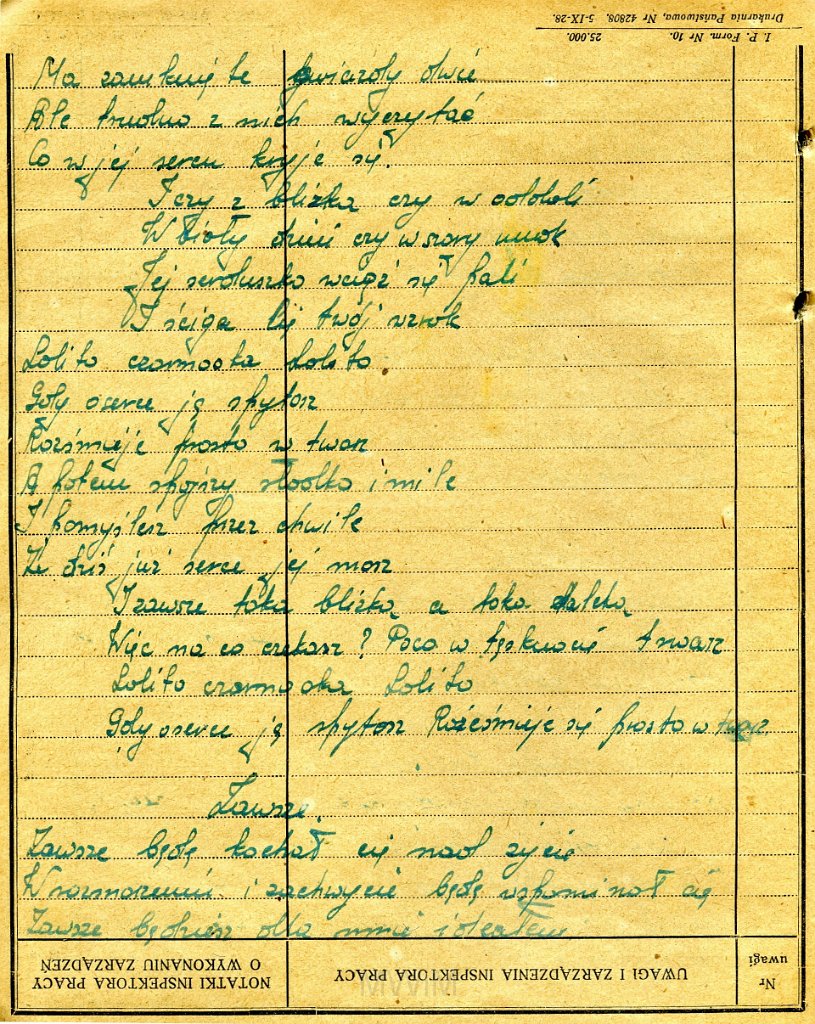 I. P. Form. Nr 10. 25.000.
Drukarnia Państwowa, Nr 42808. 5-IX-28.
Ma zamknięte gwiazdy dwie
Ale trudno z nich wyczytać
Co w jej sercu kryje się.
I czy z blizka czy w oddali
W biały dzień czy w szary mrok
Jej serduszko wciąż się pali
I ściga Cię twój wzrok
Lolito czarnooka Lolito
Gdy oserce ją spytasz
Rozśmieje prosto w twarz
A potem spojżzy słodko i mile
I pomyślesz przez chwile
Że dziś już serce jej masz
I zawsze taka blizką a taka daleką
Więc na co czekasz? Poco w tęsknocię trwasz
Lolito czarnooka Lolito
Gdy oserce ją spytasz Rożeśmieje się prosto w twarz
Zawsze.
Zawsze będę kochał cię nad zycie
W rozmarzeniu i zachwycie będę wspominał cię
Zawsze będziesz dla mnie idealem
NOTATKI INSPEKTORA PRACY O WYKONANIU ZARZĄDZEŃ
UWAGI I ZARZĄDZENIA INSPEKTORA PRACY
Nr uwagi